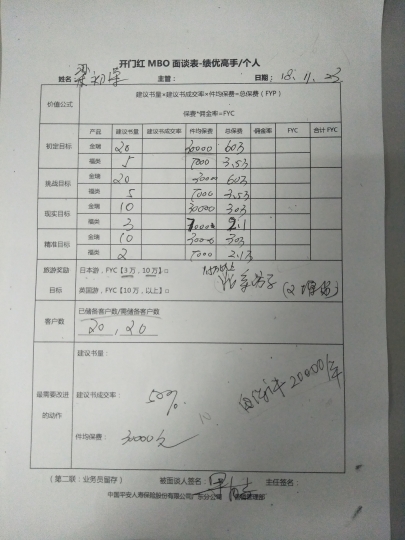 开门红 MBO 面谈表-绩优高手/个人
姓名 主管： 日期：18.11.23
价值公式 建议书量*建议书成交率=件均保费=总保费（FYP）
保费*佣金率=FYC
产品 建议书量 建议书成交率 件均保费 总保费 佣金率 FYC 合计 FYC
初定目标 金瑞 20 30000 60万
福类 5 7000 3.5万
挑战目标 金瑞 20 30000 60万
福类 5 7000 3.5万
现实目标 金瑞 10 30000 30万
福类 3 7000 2.1
精准目标 金瑞 10 30000 30万
福类 2 7000 2.1万
旅游奖励 日本游，FYC【3万，10万】□
目标 美国游，FYC【10万，以上】□
客户数 已储备客户数/需储备客户数
20，20
最需要改进的动作 建议书量：
建议书成交率： 50%
件均保费： 30000元
20000/年
（第二联：业务员留存） 被面谈人签名： 主任签名：
中国平安人寿保险股份有限公司广东分公司